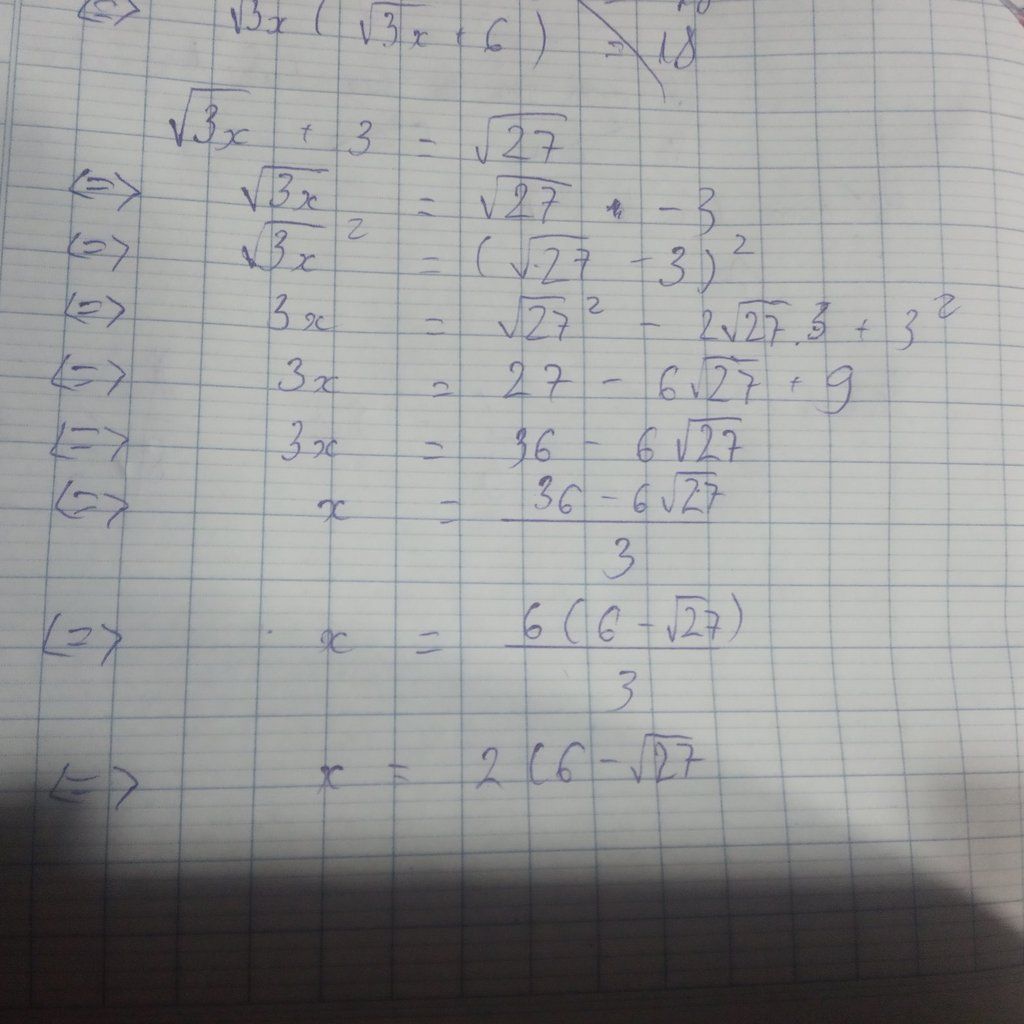 <=> √3x ( √3x + 6 ) = 18
√3x + 3 = √27
<=> √3x = √27 - 3
<=> √3x² = (√27 - 3)²
<=> 3x = √27² - 2√27.3 + 3²
<=> 3x = 27 - 6√27 + 9
<=> 3x = 36 - 6√27
<=> x = 36 - 6√27
3
<=> x = 6(6 - √27)
3
<=> x = 2(6 - √27